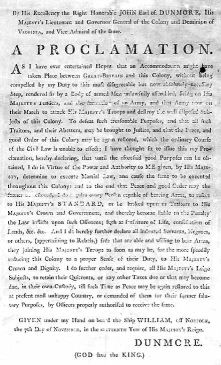 By His Excellency the Right Honorable JOHN Earl of DUNMORE, His
MAJESTY's Lieutenant and Governor General of the Colony and Dominion of
VIRGINIA, and Vice Admiral of the same.
A PROCLAMATION.
AS I have ever entertained Hopes that an Accommodation might have
taken Place between GREAT-BRITAIN and this Colony, without being
compelled by my Duty to this most disagreeable but now absolutely necessary
Step, rendered so by a Body of armed Men unlawfully assembled, firing on His
MAJESTY's Tenders, and the formation of an Army, and that Army now on
their March to attack His MAJESTY's Troops and destroy the well disposed Sub-
jects of this Colony. To defeat such treasonable Purposes, and that all such
Traitors, and their Abettors, may be brought to Justice, and that the Peace, and
good Order of this Colony may be again restored, which the ordinary Course
of the Civil Law is unable to effect; I have thought fit to issue this my Pro-
clamation, hereby declaring, that until the aforesaid good Purposes can be ob-
tained, I do in Virtue of the Power and Authority to ME given, by His MAJES-
TY, determine to execute Martial Law, and cause the same to be executed
throughout this Colony: and to the end that Peace and good Order may the
sooner be
capable of bearing Arms, to
His MAJESTY's STANDARD, or be looked upon as Traitors to His
MAJESTY's Crown and Government, and thereby become liable to the Penalty
the Law inflicts upon such Offences; such as forfeiture of Life, confiscation of
Lands, &c. &c. And I do hereby further declare all indented Servants, Negroes,
or others, (appertaining to Rebels,) free that are able and willing to bear Arms,
they joining His MAJESTY's Troops as soon as may be, for the more speedily
reducing this Colony to a proper Sense of their Duty, to His MAJESTY's
Crown and Dignity. I do further order, and require, all His MAJESTY's Liege
Subjects, to retain their Quitrents, or any other Taxes due or that may become
due, in their own Custody, till such Time as Peace may be again restored to this
at present most unhappy Country, or demanded of them for their former salu-
tary Purposes, by Officers properly authorised to receive the same.
GIVEN under my Hand on board the Ship WILLIAM, off NORFOLK,
the 7th Day of NOVEMBER, in the SIXTEENTH Year of His MAJESTY's Reign.
DUNMORE.
(GOD save the KING.)